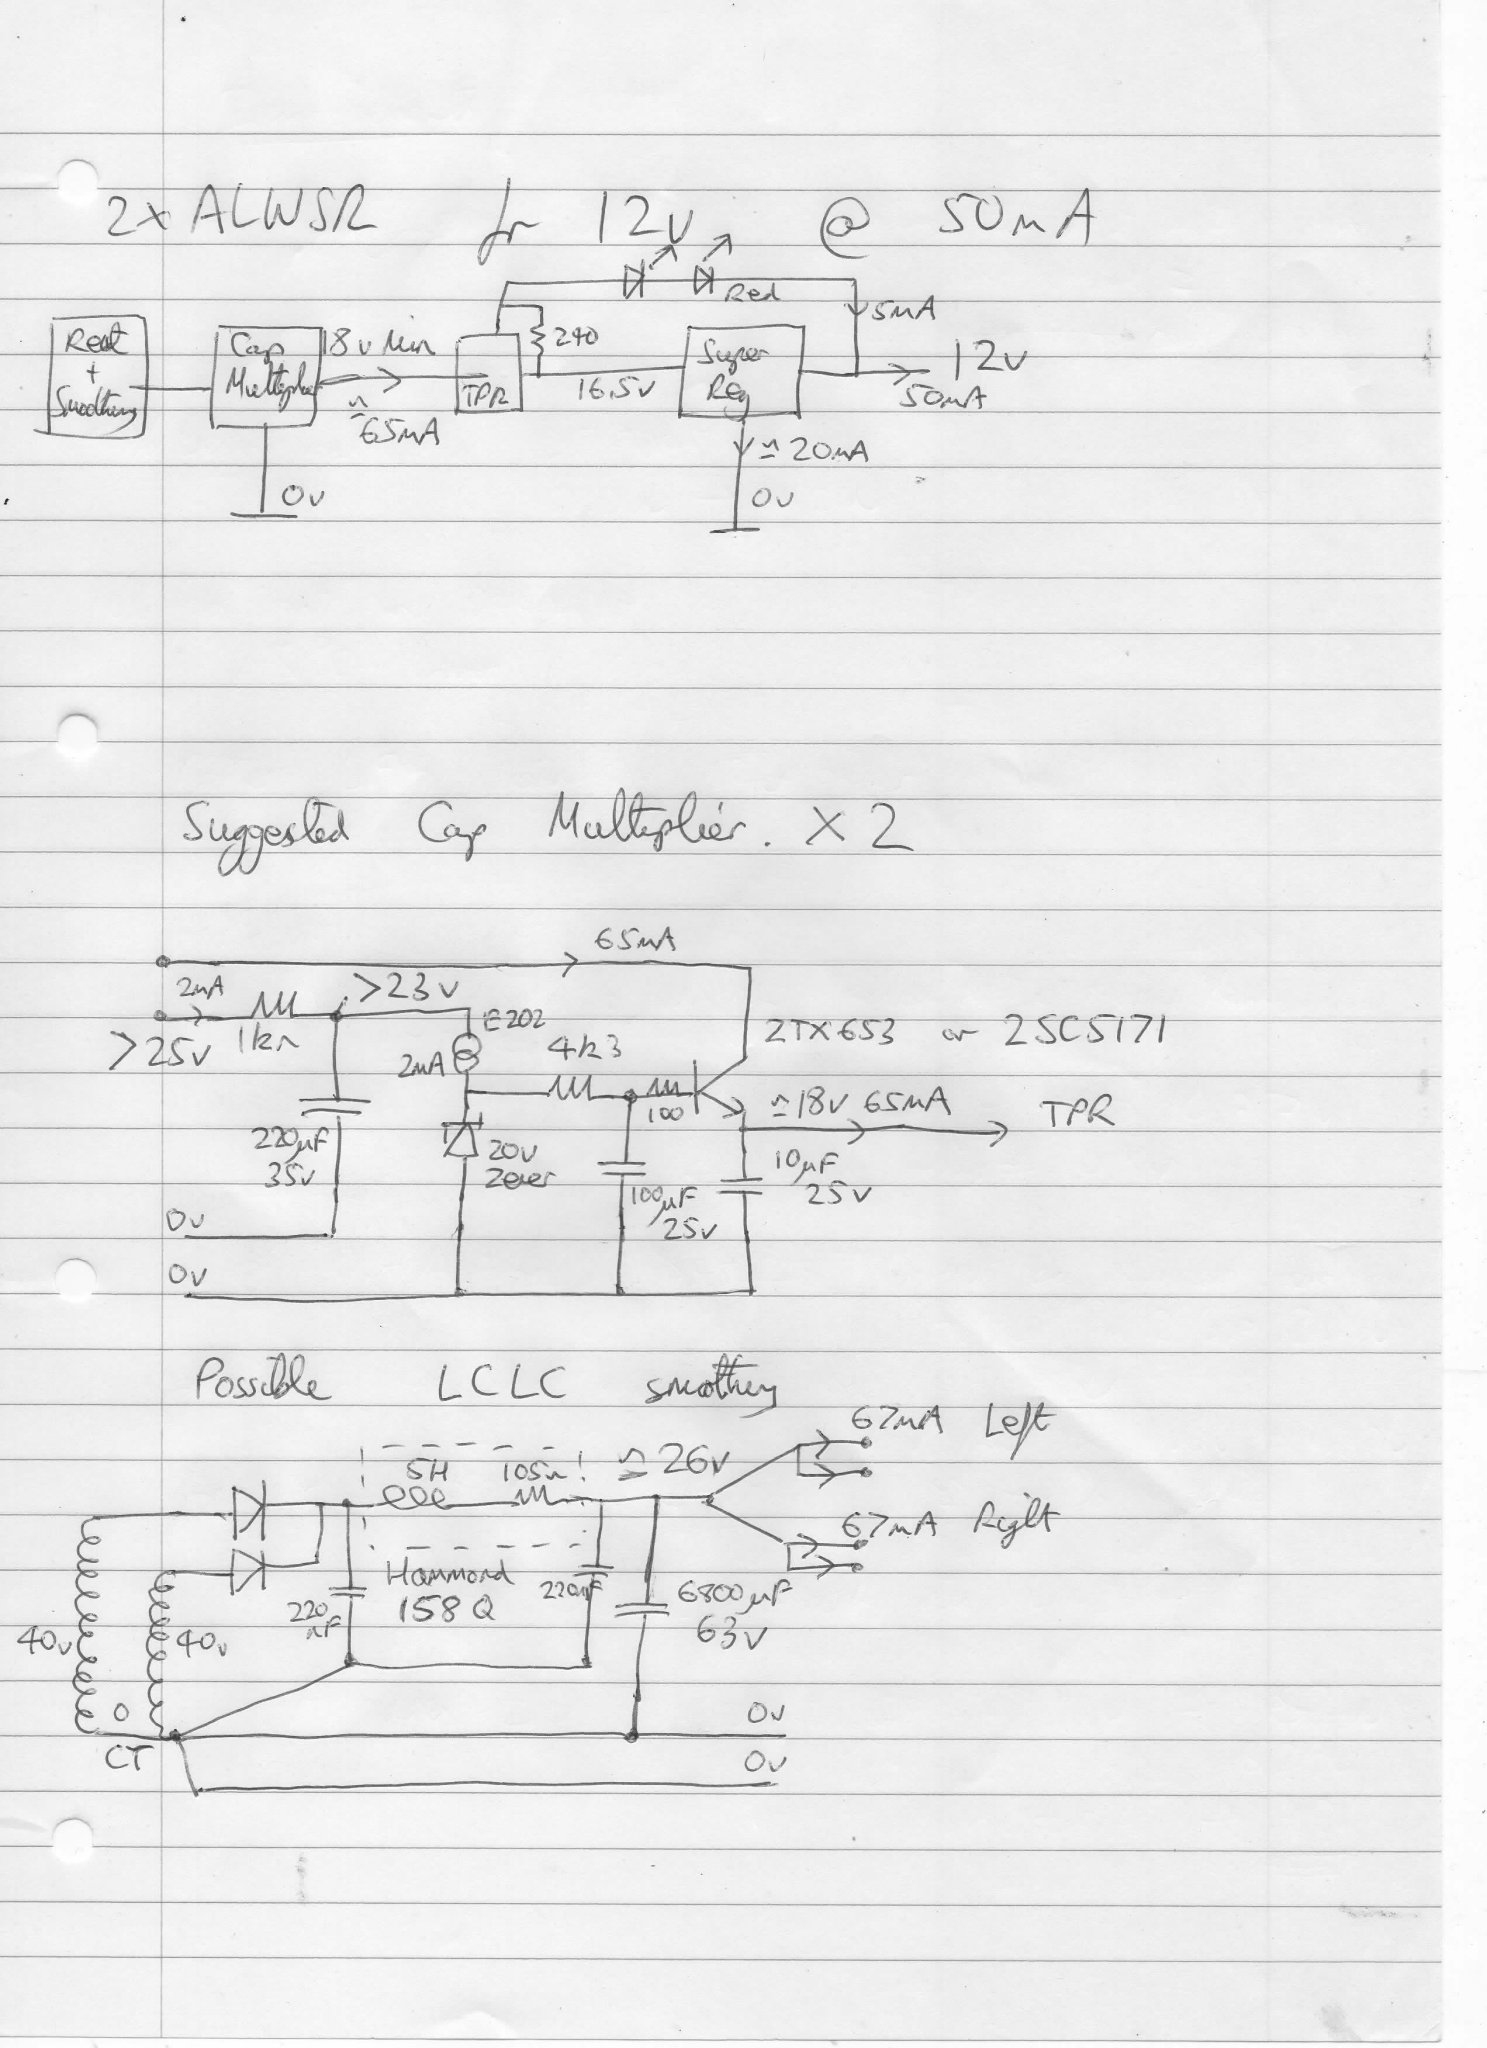 2x ALWSR for 12v @ 50mA
Red
5mA
Rect + Smoothing
Cap Multiplier
18v Min
≃ 65mA
TPR
240
16.5v
Super Reg
12v
50mA
≃ 20mA
0v
0v
Suggested Cap Multiplier. X2
65mA
2mA
>23v
E202
>25v
1kΩ
2mA
4k3
ZTX653 or 2SC5171
100
≃18v 65mA
TPR
220µF
35v
20v
Zener
100µF
25v
10µF
25v
0v
0v
Possible LCLC smoothing
67mA Left
5H
105Ω
≃ 26v
67mA Right
Hammond
158Q
220nF
220nF
6800µF
63v
40v
40v
0
CT
0v
0v